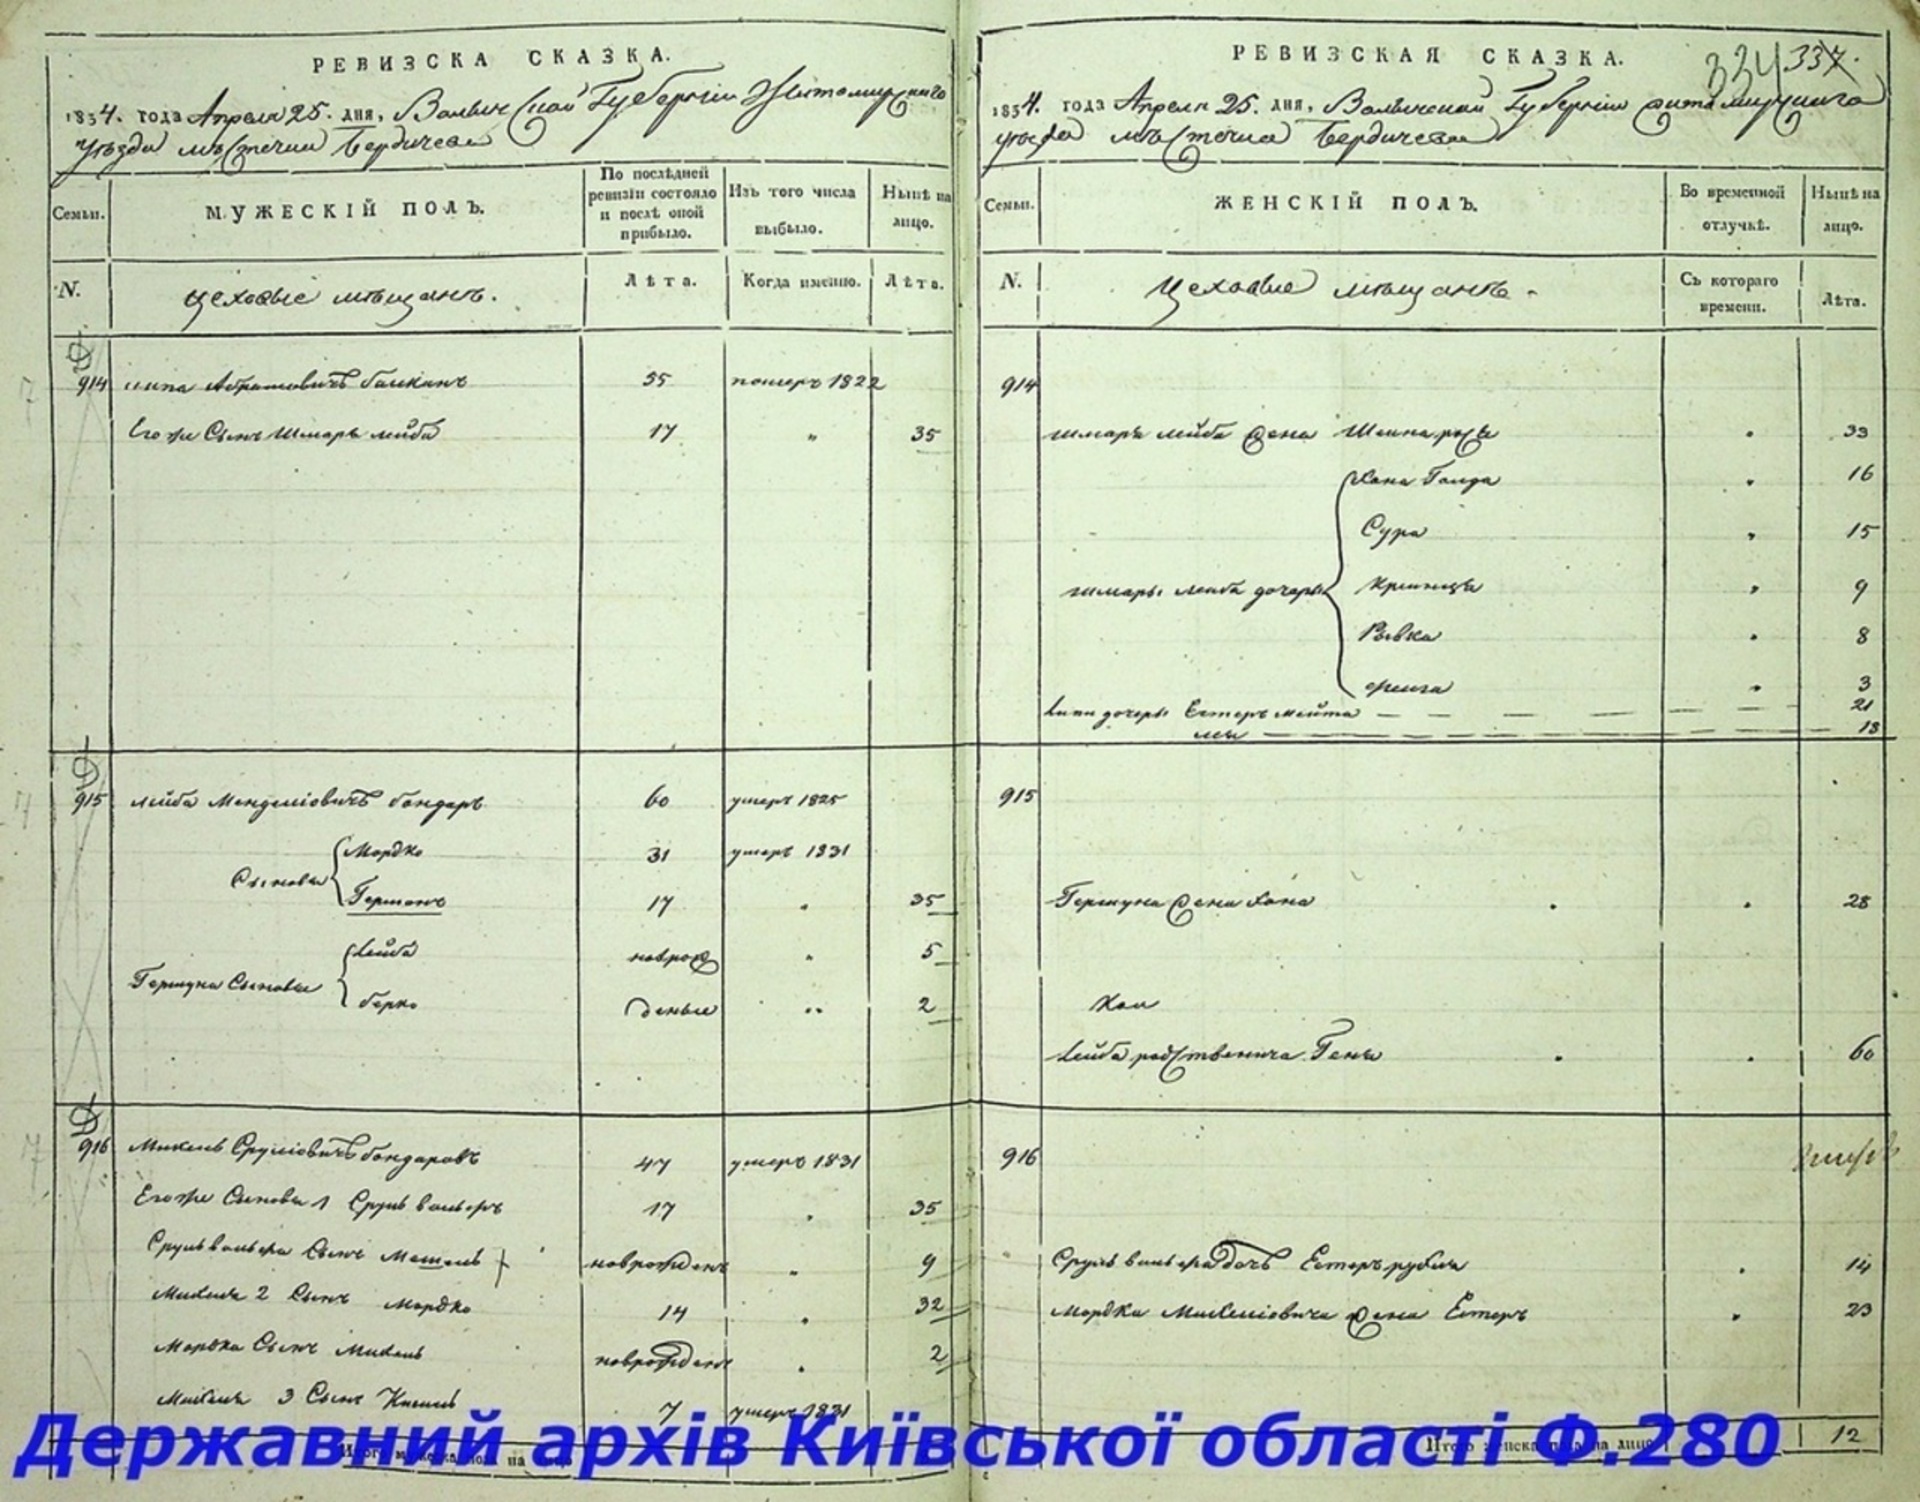 РЕВИЗСКА СКАЗКА.
1834. года Апреля 25. дня, Волынской Губернии Житомирскаго
уезда местечка Бердичева
Семьи.
МУЖЕСКІЙ ПОЛЪ.
По послѣдней ревизіи состояло и послѣ оной прибыло.
Изъ того числа выбыло.
Нынѣ на лицо.
N.
цеховые мещане.
Лѣта.
Когда именно.
Лѣта.
914 Абрамовичъ 55 1822
Его же Сынъ Шмаръ лейба 17 " 35
915 лейба Менделіовичъ бондаръ 60 умеръ 1825
Сыновья Мордко 31 умеръ 1831
Гершонъ 17 " 35
Гершуна Сыновья лейба новорож " 5
берко деные " 2
916 Михель Срулiовичъ бондаровъ 47 умеръ 1831
Его же Сыновья 1 Сруль вольфъ 17 35
Сруль вольфа Сынъ новорожденъ 9
Михеля 2 Сынъ Мордко 14 32
Мордка Сынъ Михель новорожденъ 2
Михеля 3 Сынъ 7 умеръ 1831
РЕВИЗСКАЯ СКАЗКА.
334 337.
1834. года Апреля 25. дня, Волынской Губернии Житомирскаго
уезда местечка Бердичева
Семьи.
ЖЕНСКІЙ ПОЛЪ.
Во временной отлучкѣ.
Нынѣ на лицо.
N.
Цеховые мещане.
Съ котораго времени.
Лѣта.
914
шмаръ лейба жена 33
Хана Голда 16
Сура 15
шмаръ лейба дочеры 9
Ривка 8
3
дочеры Естеръ 21
18
915
Гершуна жена Хана 28
лейба родственица Геня 60
916
Сруль вольфа дочь Естеръ 14
Мордка Михелiовича жена Естеръ 23
Итого женска пола на лицо 12
Державний архів Київської області Ф.280